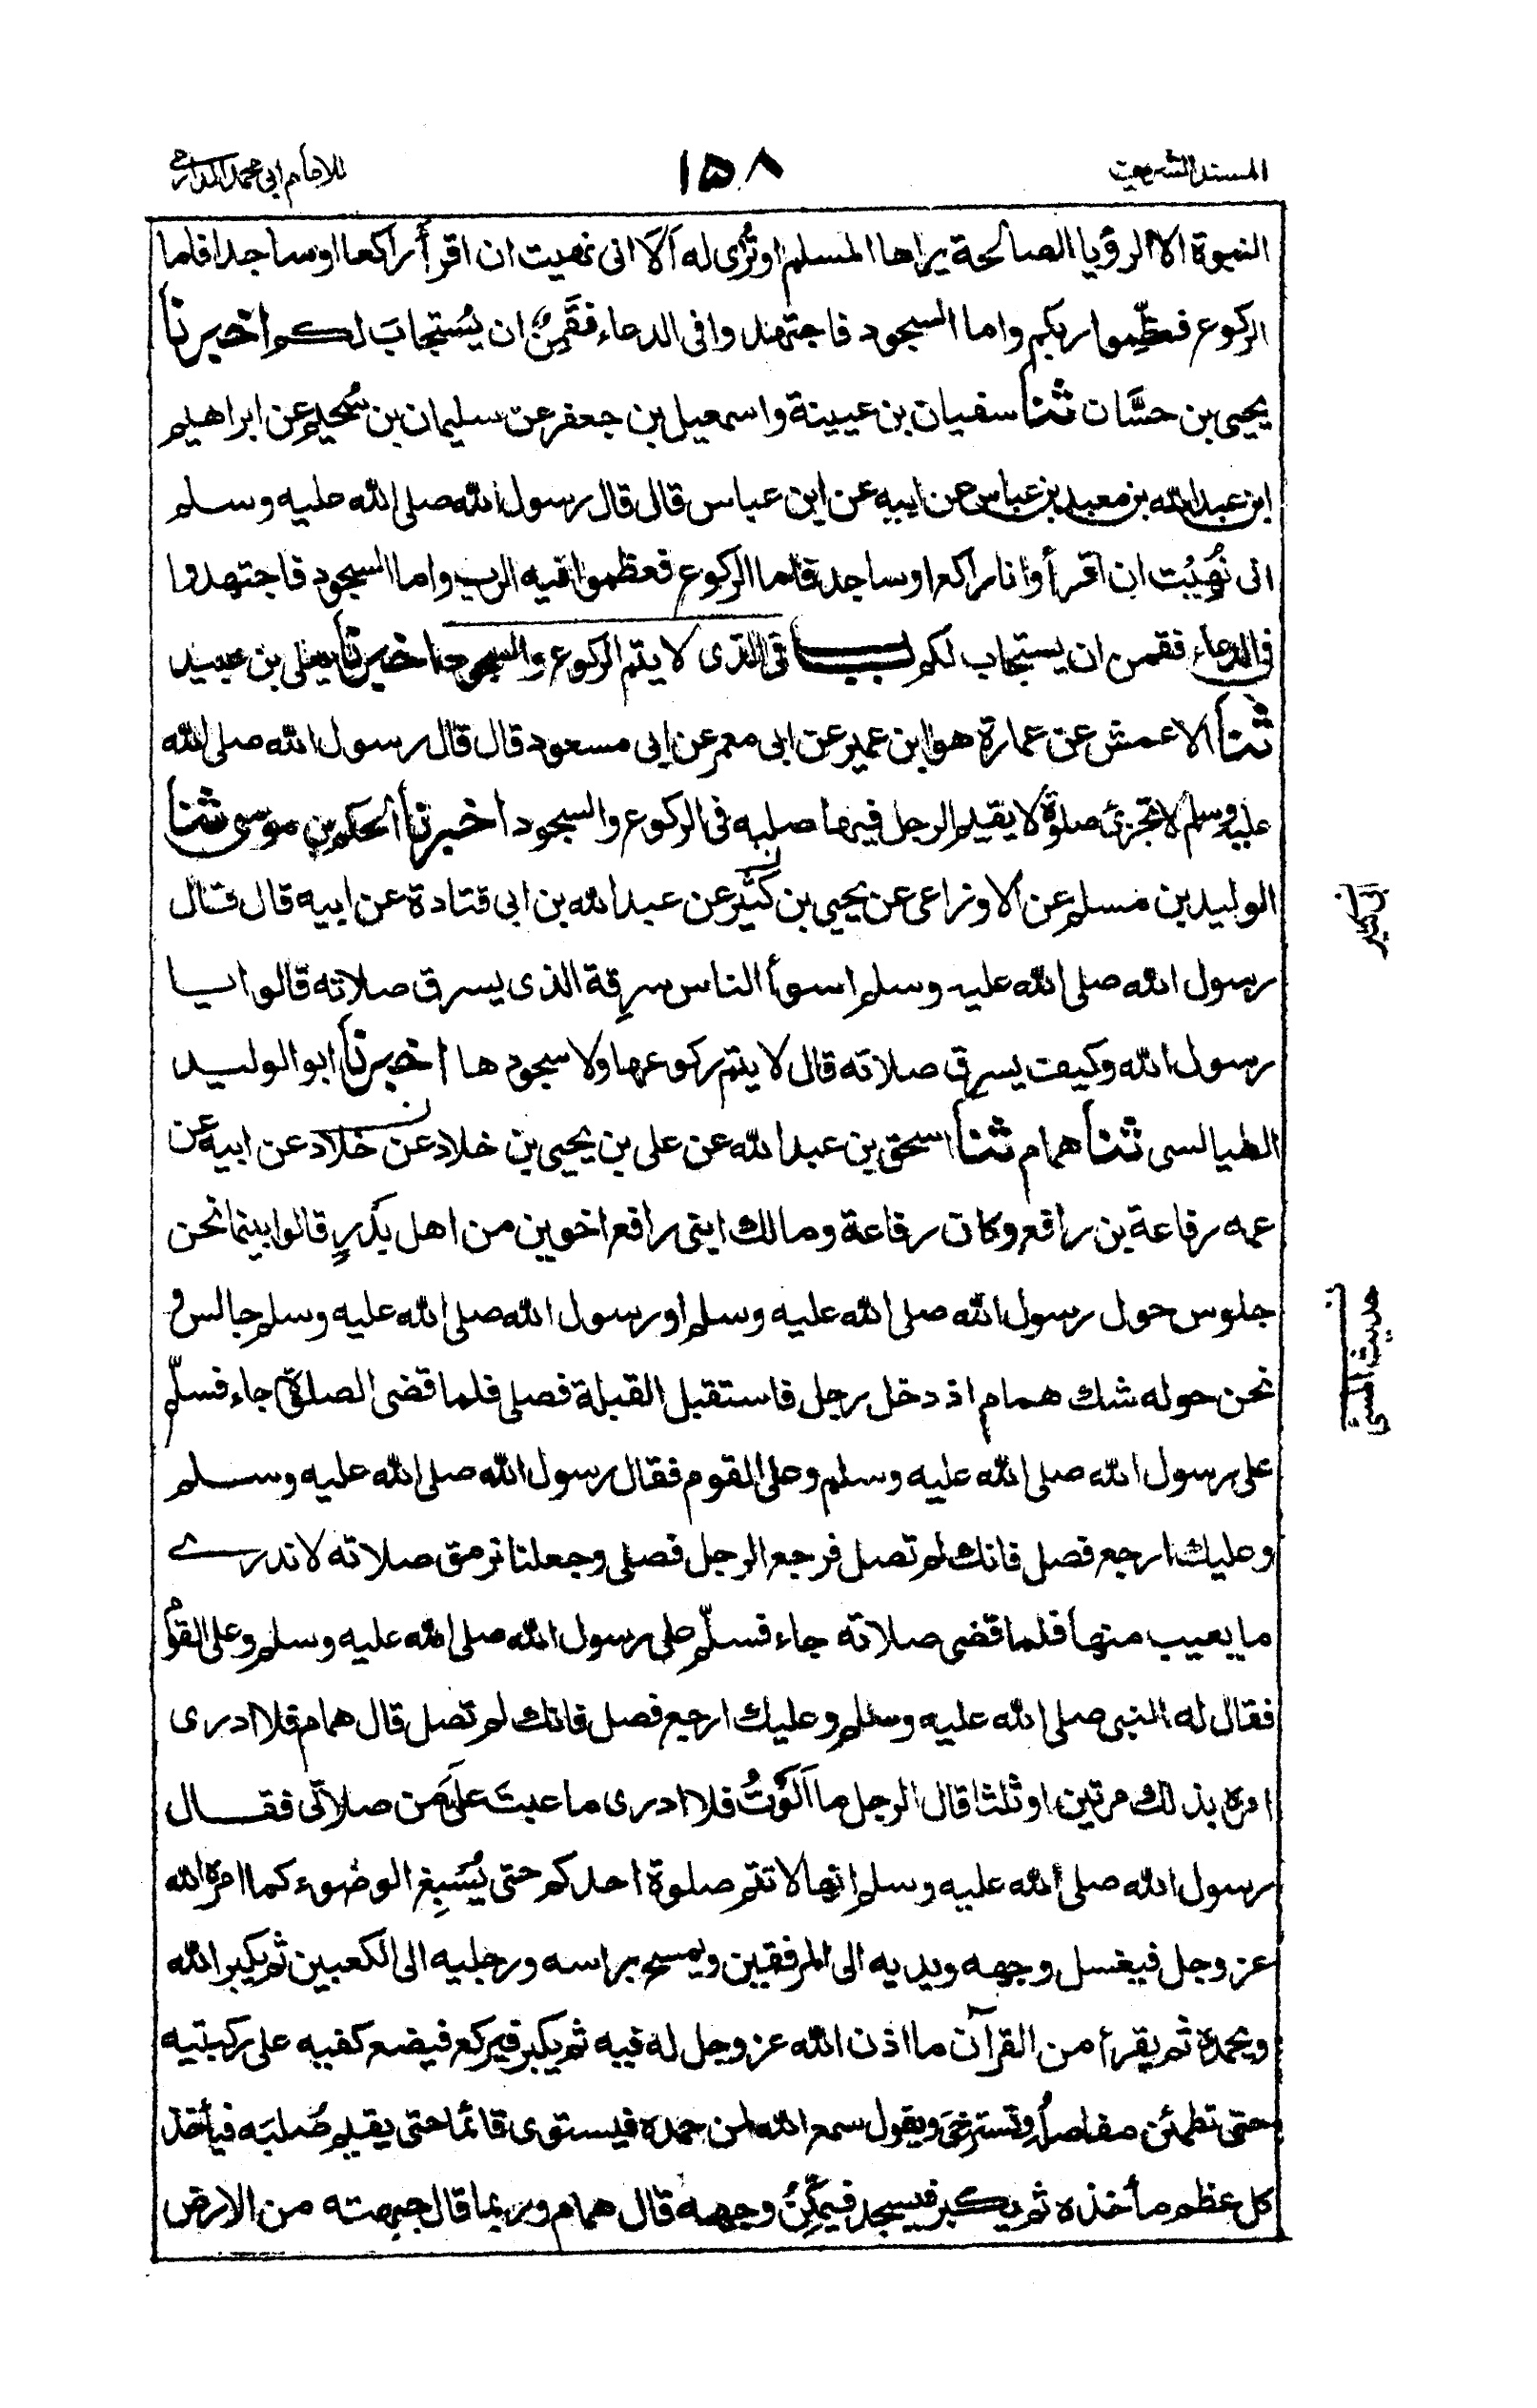 المسند الشريف ١٥٨ للامام ابی محمد الدارمی
النبوة الا الرؤيا الصالحة يراها المسلم او تُرٰی له اَلَا انی نهيت ان اقرأ راكعا او ساجدا فاما
الركوع فعظِّموا ربكم واما السجود فاجتهدوا فی الدعاء فقَمِنٌ ان يُستجابَ لكم اخبرنا
يحيی بن حسَّان ثنا سفيان بن عيينة واسمعيل بن جعفر عن سليمان بن سُحيم عن ابراهيم
ابن عبد الله بن معبد بن عباس عن ابيه عن ابن عباس قال قال رسول الله صلی الله عليه وسلم
انی نُهِيْت ان اقرأ وانا راكع او ساجد فاما الركوع فعظموا فيه الرب واما السجود فاجتهدوا
فی الدعاء فقمن ان يستجاب لكم باب فی الذی لا يتم الركوع والسجود اخبرنا يعلی بن عبيد
ثنا الاعمش عن عمارة هو ابن عمير عن ابی معمر عن ابی مسعود قال قال رسول الله صلی الله
عليه وسلم لا تجزئ صلوة لا يقيم الرجل فيها صلبه فی الركوع والسجود اخبرنا الحكم بن موسی ثنا
الوليد بن مسلم عن الاوزاعی عن يحيی بن كثير عن عبد الله بن ابی قتادة عن ابيه قال قال
رسول الله صلی الله عليه وسلم اسوأ الناس سرِقة الذی يسرق صلاته قالوا يا
رسول الله وكيف يسرق صلاته قال لا يتم ركوعها ولا سجودها اخبرنا ابو الوليد
الطيالسی ثنا همام ثنا اسحق بن عبد الله عن علی بن يحيی بن خلاد عن خلاد عن ابيه عن
عمه رفاعة بن رافع وكان رفاعة ومالك ابنی رافع اخوين من اهل بدرٍ قالوا بينما نحن
جلوس حول رسول الله صلی الله عليه وسلم او رسول الله صلی الله عليه وسلم جالس و
نحن حوله شك همام اذ دخل رجل فاستقبل القبلة فصلی فلما قضی الصلوة جاء فسلّم
علی رسول الله صلی الله عليه وسلم وعلی القوم فقال رسول الله صلی الله عليه وسلم
وعليك ارجع فصل فانك لم تصل فرجع الرجل فصلی وجعلنا نرمق صلاته لا ندرے
ما يعيب منها فلما قضی صلاته جاء فسلّم علی رسول الله صلی الله عليه وسلم وعلی القوم
فقال له النبی صلی الله عليه وسلم وعليك ارجع فصل فانك لم تصل قال همام فلا ادری
امره بذلك مرتين او ثلثا قال الرجل ما اَلَوْتُ فلا ادری ما عبتَ علَیَّ من صلاتی فقال
رسول الله صلی الله عليه وسلم انها لا تتم صلوة احدكم حتی يُسْبِغ الوضوء كما امره الله
عز وجل فيغسل وجهه ويديه الی المرفقين ويمسح براسه ورجليه الی الكعبين ثم يكبر الله
ويحمده ثم يقرأ من القرآن ما اذن الله عز وجل له فيه ثم يكبر فيركع فيضع كفيه علی ركبتيه
حتی تطمئن مفاصلُه وتسترخیَ ويقول سمع الله لمن حمده فيستوی قائما حتی يقيم صُلبَه فيأخذ
كل عظم مأخذه ثم يكبر فيسجد فيمكِّنُ وجهه قال همام وربما قال جبهته من الارض
بن ابی كثير
حديث المسئ